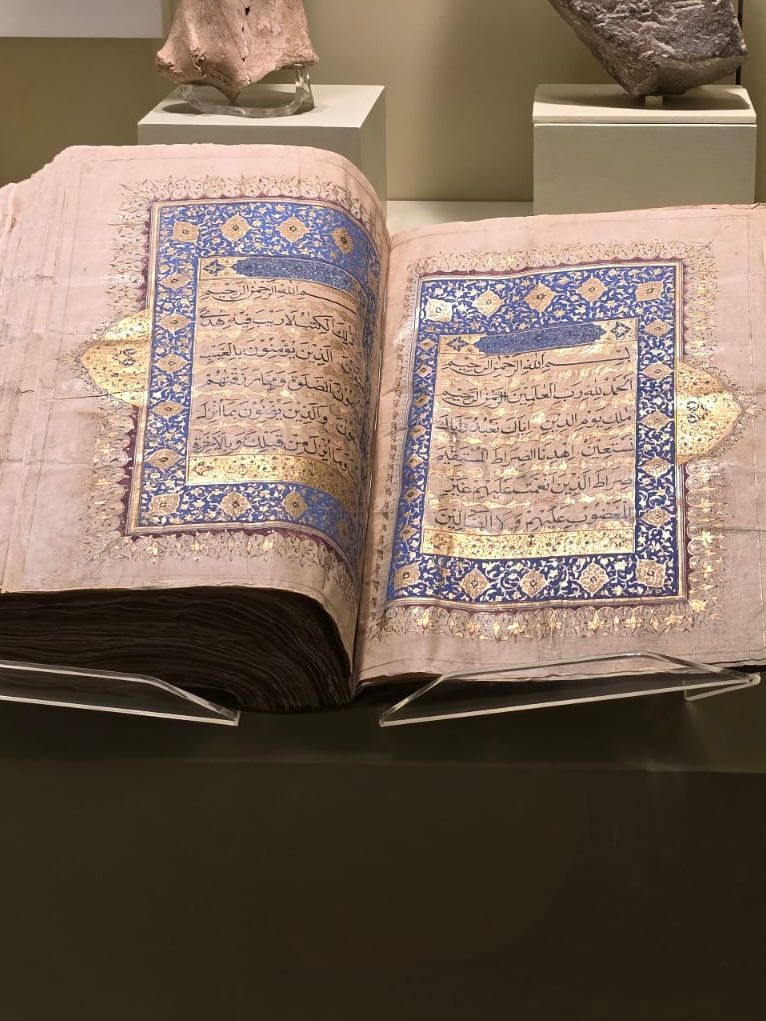 بسم الله الرحمن الرحيم
الحمد لله رب العلمين الرحمن الرحيم
ملك يوم الدين اياك نعبد واياك
نستعين اهدنا الصراط المستقيم
صراط الذين انعمت عليهم غير
المغضوب عليهم ولا الضالين
بسم الله الرحمن الرحيم
ذلك الكتب لا ريب فيه هدى
الذين يؤمنون بالغيب
الصلوة ومما رزقنهم
والذين يؤمنون بما انزل
وما انزل من قبلك وبالاخرة